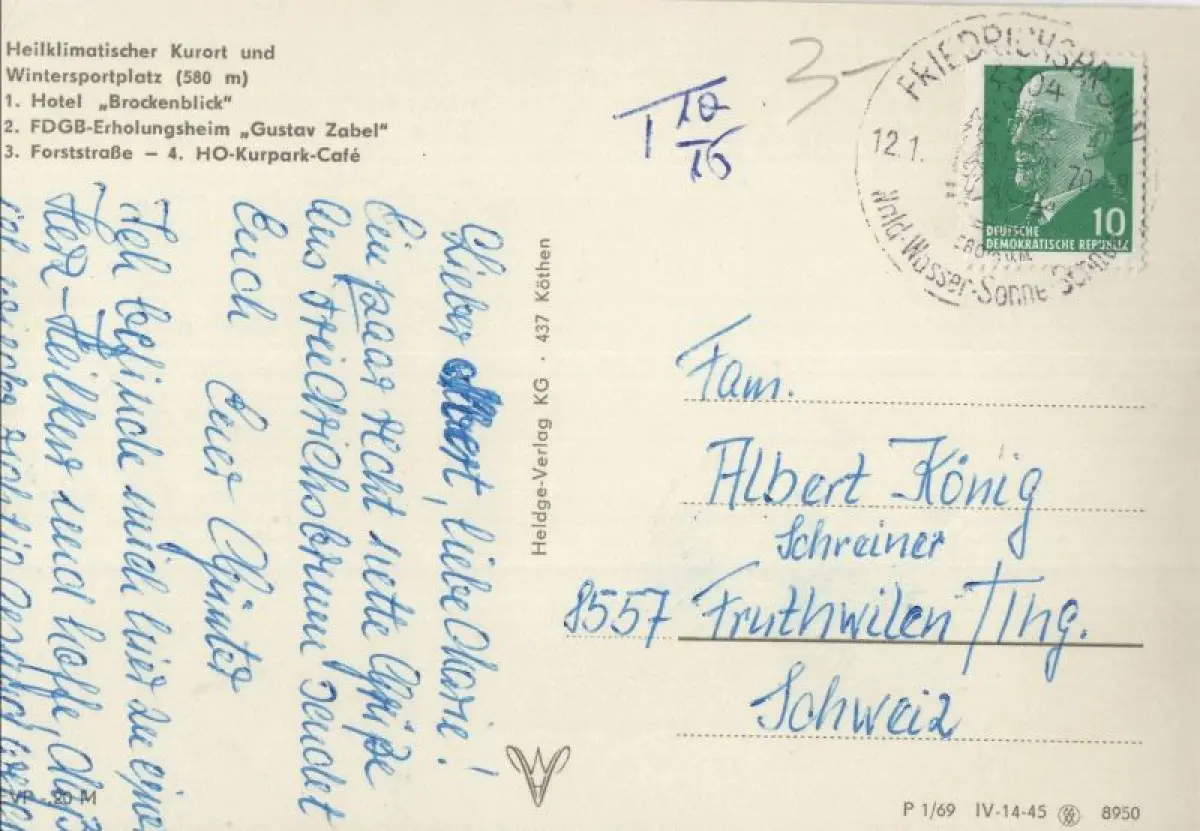 Heilklimatischer Kurort und
Wintersportplatz (580 m)
1. Hotel „Brockenblick“
2. FDGB-Erholungsheim „Gustav Zabel“
3. Forststraße – 4. HO-Kurpark-Café
T 10
16
3-
FRIEDRICHSBRUNN
4304
12.1.
70
Wald-Wasser-Sonne
10
DEUTSCHE
DEMOKRATISCHE REPUBLIK
Lieber Albert, liebe Marie!
Ein paar recht nette Grüße
aus Friedrichsbrunn sendet
Euch Euer Günter
Ich befinde mich hier zu einer
Herz-Heilkur und hoffe, daß
ich wieder richtig gesund
Heldge-Verlag KG · 437 Köthen
Fam.
Albert König
Schreiner
8557 Fruthwilen / Thg.
Schweiz
EVP -.20 M
P 1/69 IV-14-45 8950